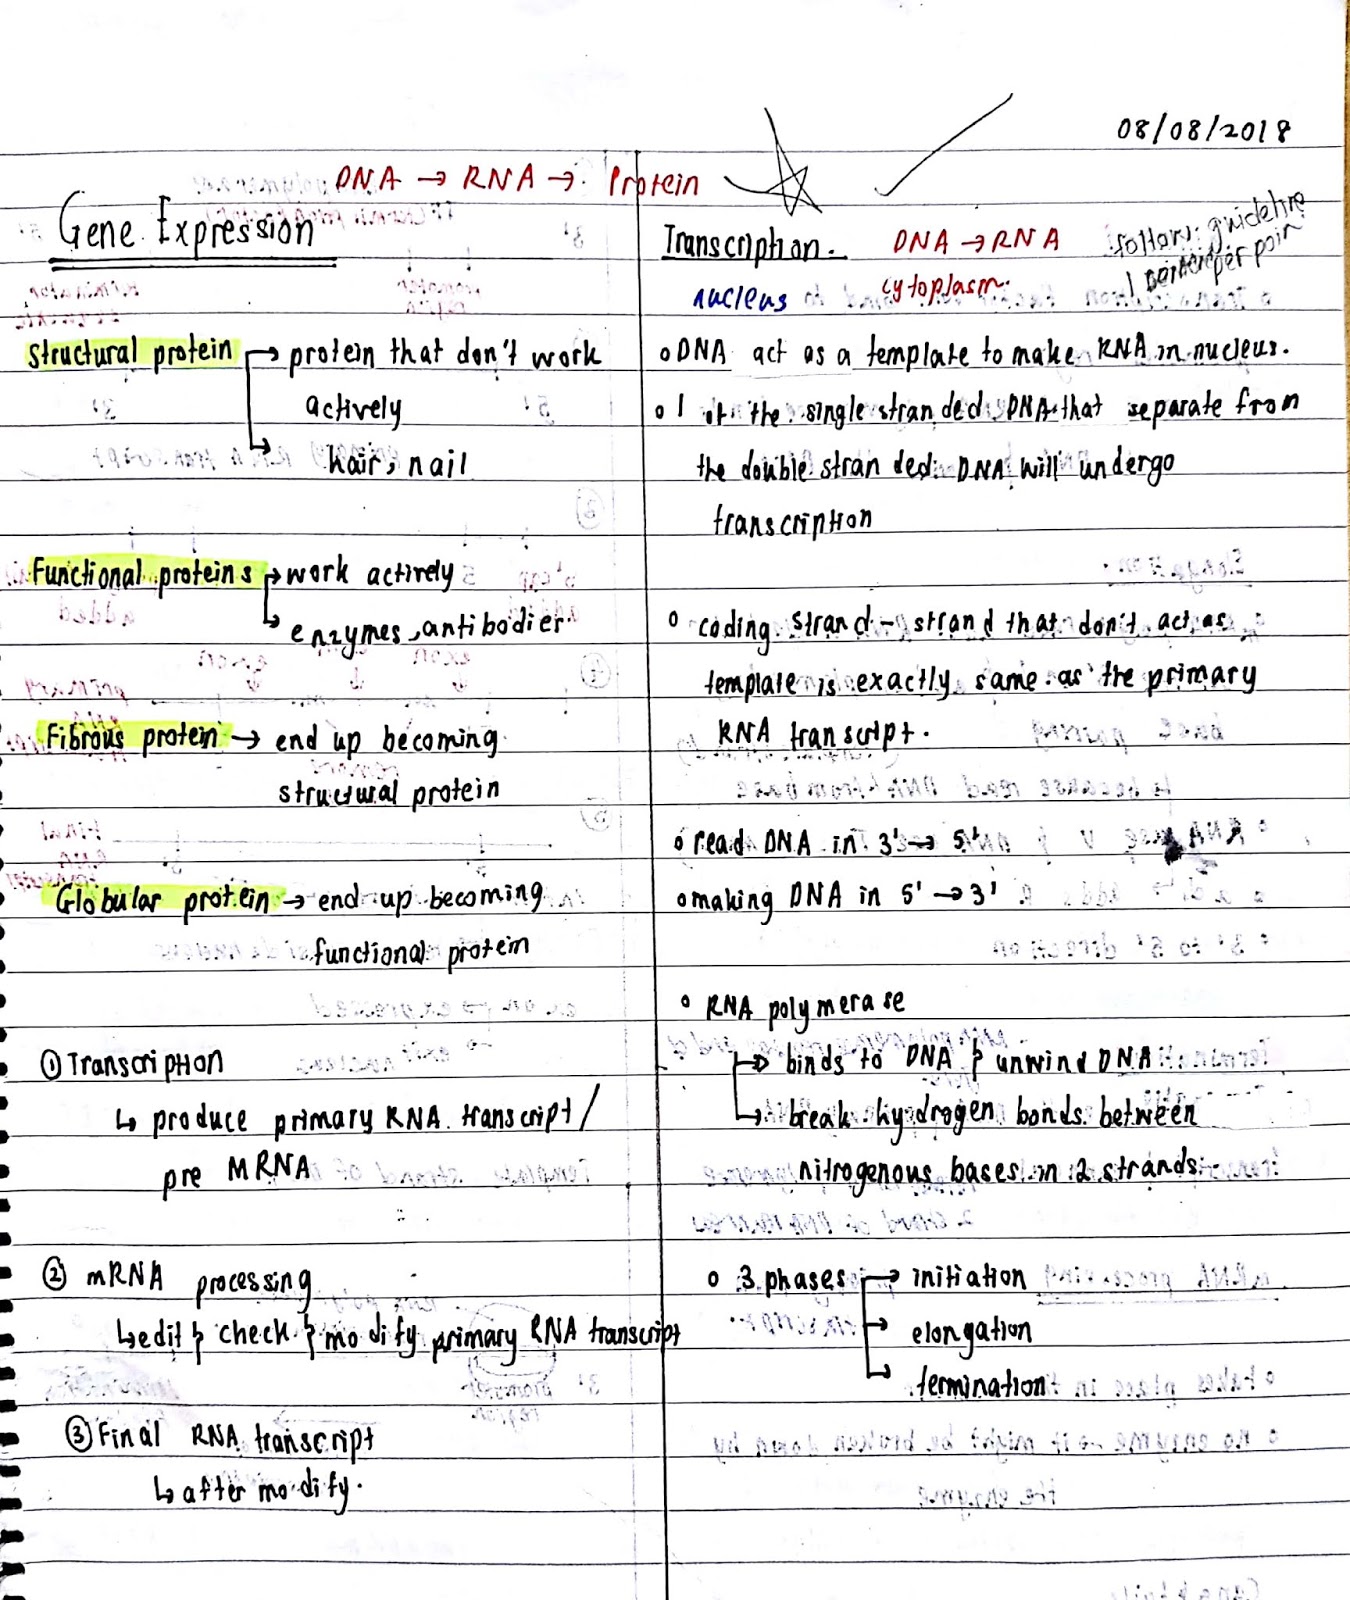 08/08/2018
DNA → RNA → Protein
Gene Expression
Structural protein → protein that don't work
actively
→ hair, nail
Functional proteins → work actively
→ enzymes, antibodies
Fibrous protein → end up becoming
structural protein
Globular protein → end up becoming
functional protein
① Transcription
↳ produce primary RNA transcript /
pre MRNA
② mRNA processing
↳ edit & check & modify primary RNA transcript
③ Final RNA transcript
↳ after modify.
Transcription. DNA → RNA
nucleus cytoplasm
guideline
1 per
o DNA act as a template to make RNA in nucleus.
o 1 of the single stranded DNA that separate from
the double stranded DNA will undergo
transcription
o coding strand - strand that don't act as
template is exactly same as the primary
RNA transcript.
o read DNA in 3' → 5'
o making DNA in 5' → 3'
o RNA polymerase
→ binds to DNA & unwind DNA
→ break hydrogen bonds between
nitrogenous bases in 2 strands.
o 3 phases → initiation
→ elongation
→ termination